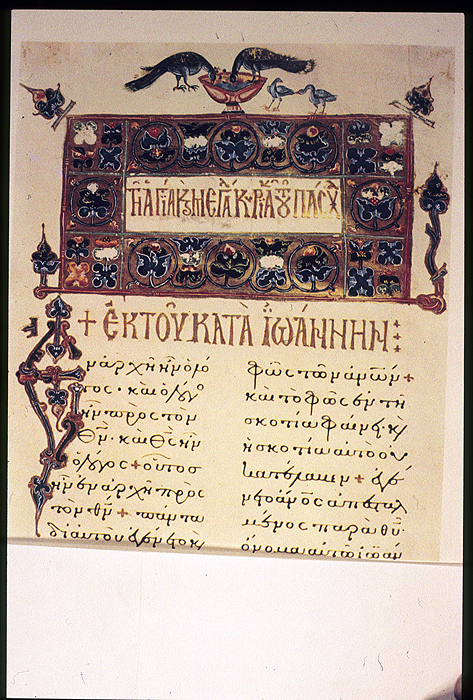 ΤΗ ΑΓΙΑ Κ ΜΕΓΑΛ Κ·ΡΙΑΚ ΤΟΥ ΠΑΣΧ
+ ἘΚ ΤΟΥ ΚΑΤᾺ ἸΩΆΝΝΗΝ :
Ἐν ἀρχῆ ἦν ὁ λό
γος · καὶ ὁ λόγος
ἦν πρὸς τὸν
θν · καὶ θς ἦν
ὁ λόγος + οὗτος
ἦν ἐν ἀρχῆ πρὸς
τὸν θν + πάντα
δι αὐτοῦ ἐγένετο κ
φῶς τῶν ἀνων +
καὶ τὸ φῶς ἐν τῆ
σκοτία φαίνει · κ
ἡ σκοτία αὐτὸ οὐ
κατέλαβεν + ἐγέ
νετο ἄνος ἀπεσταλ
μένος παρὰ θυ ·
ὄνομα αὐτῶ ἰωάν